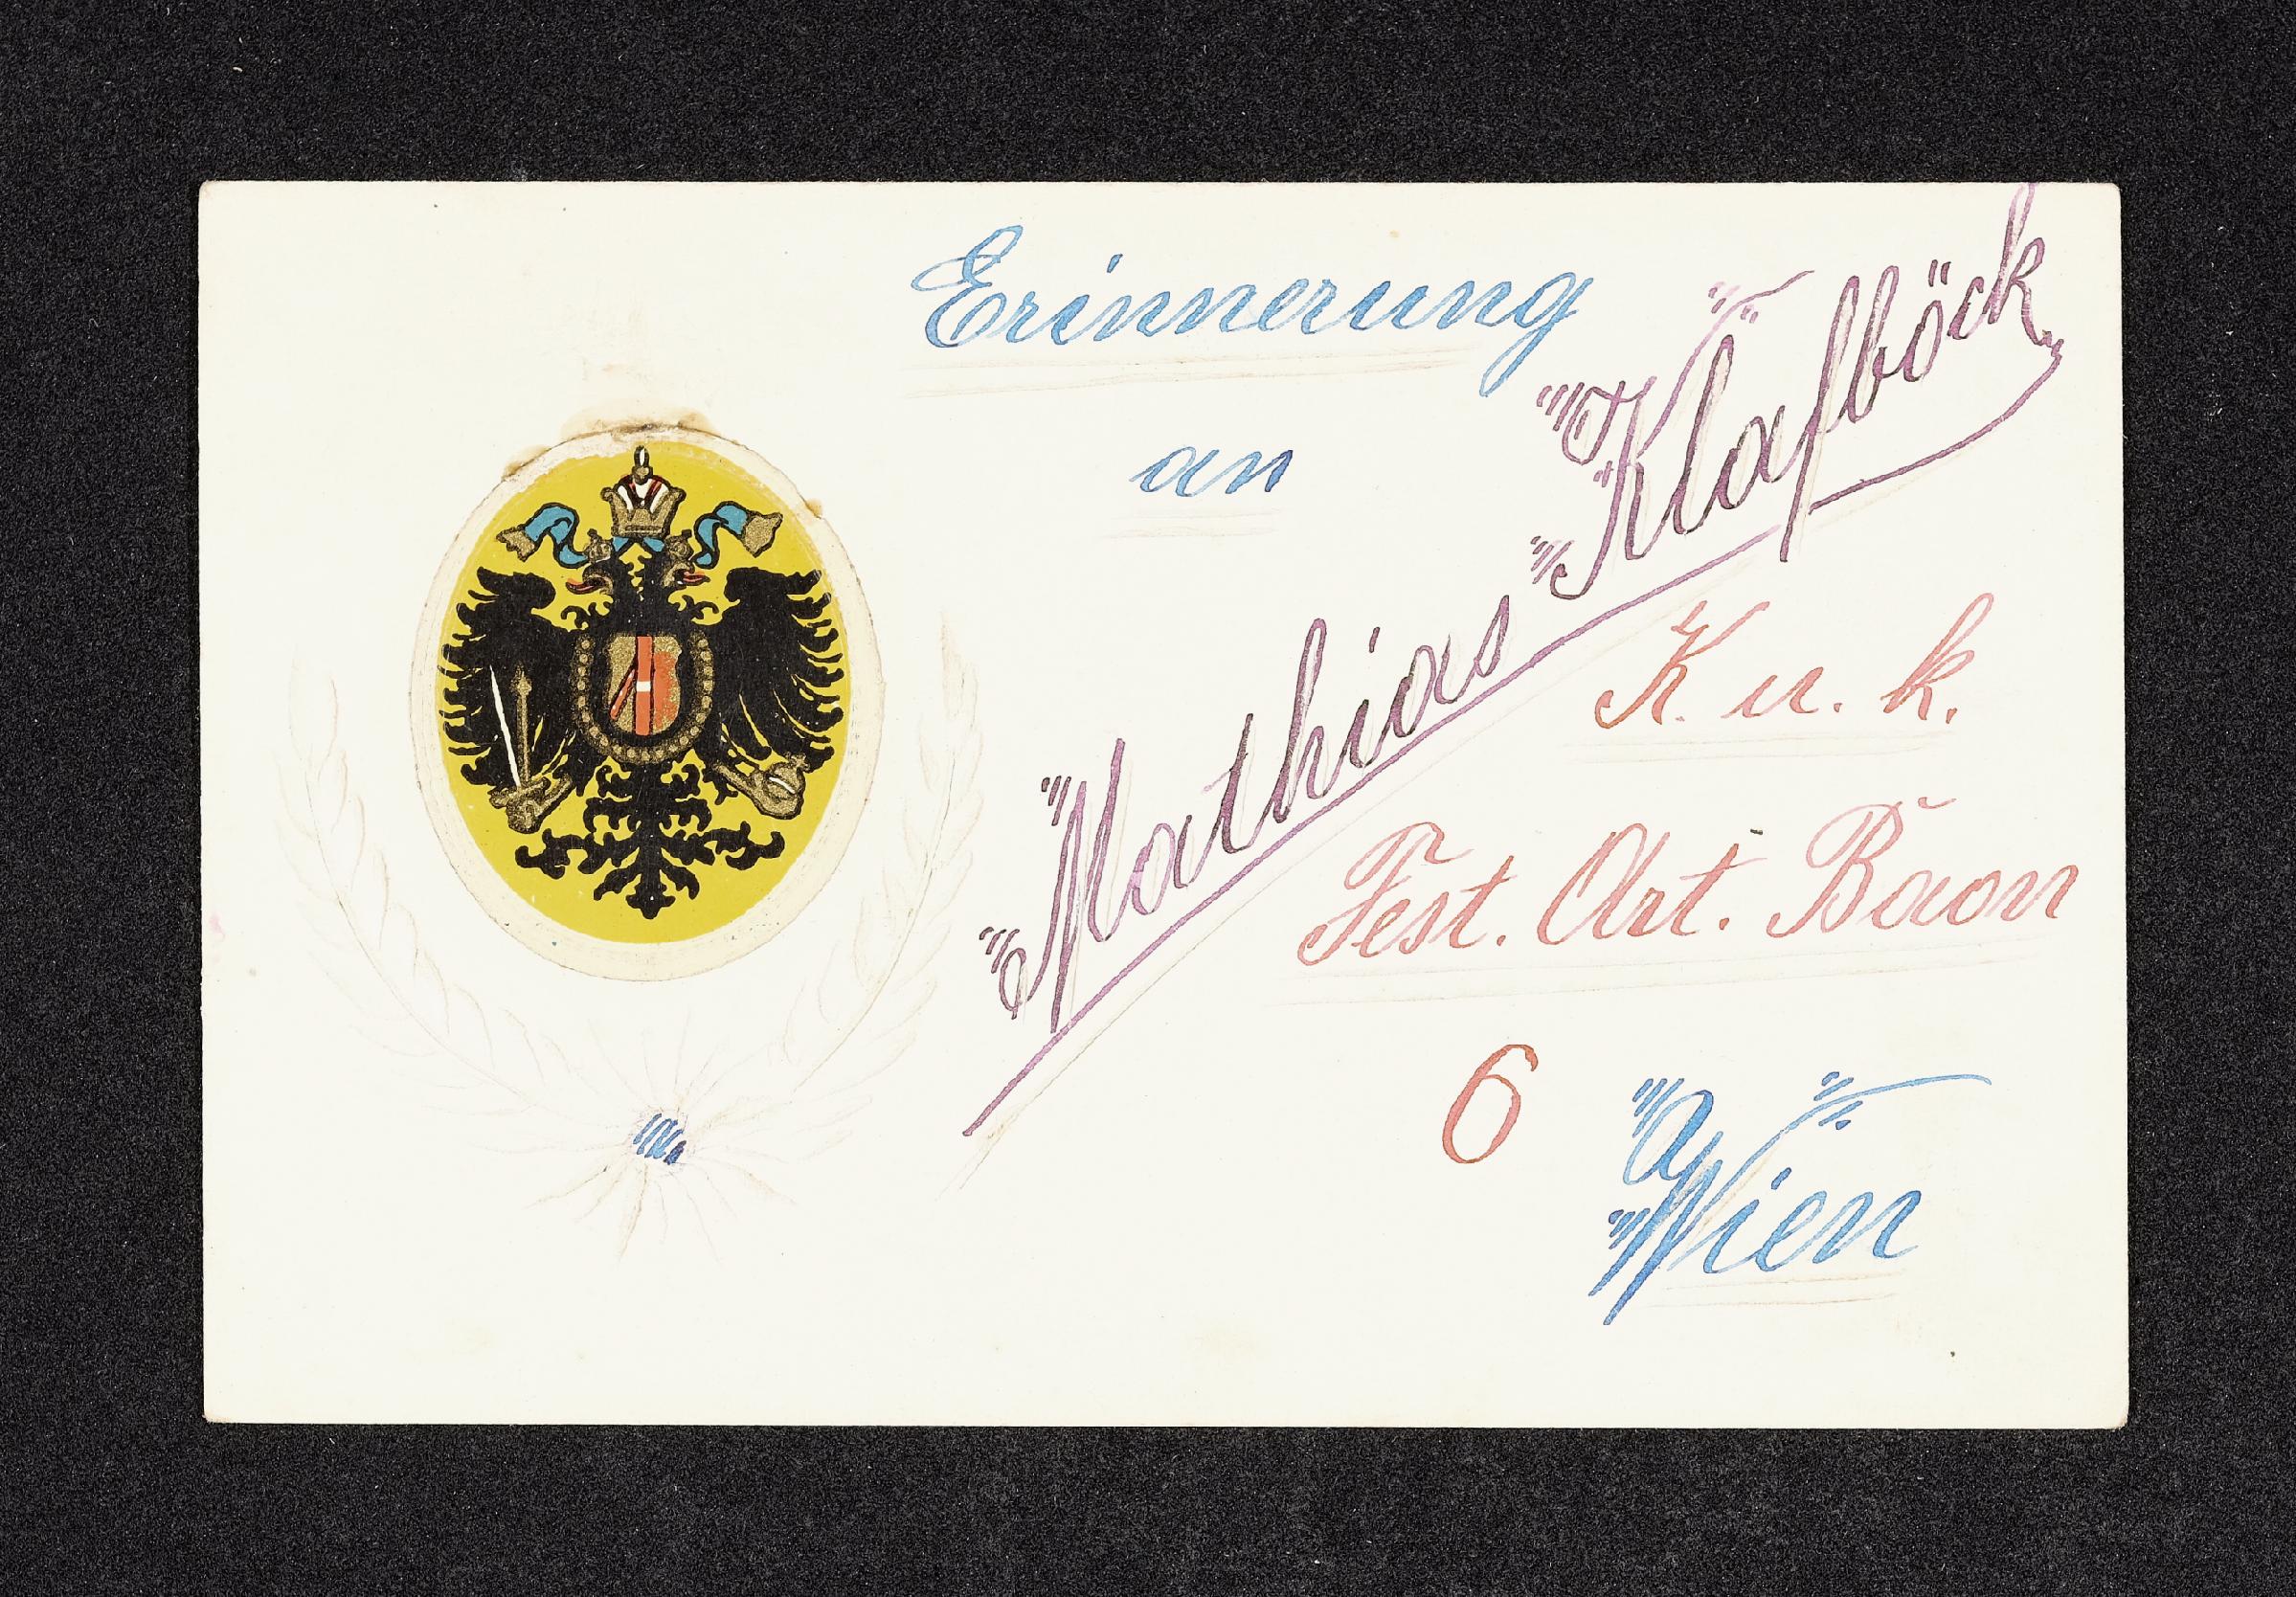 Erinnerung
an
Mathias Klafböck
K. u. k.
Fest. Art. Baon
6
Wien